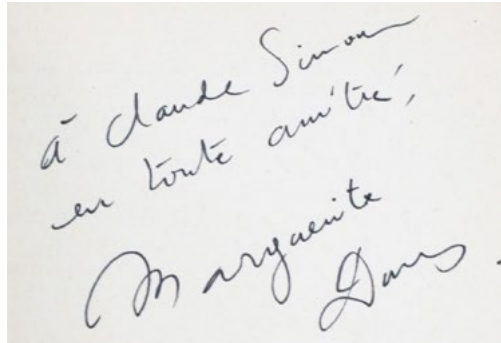 à Claude Simon
en toute amitié,
Marguerite
Duras